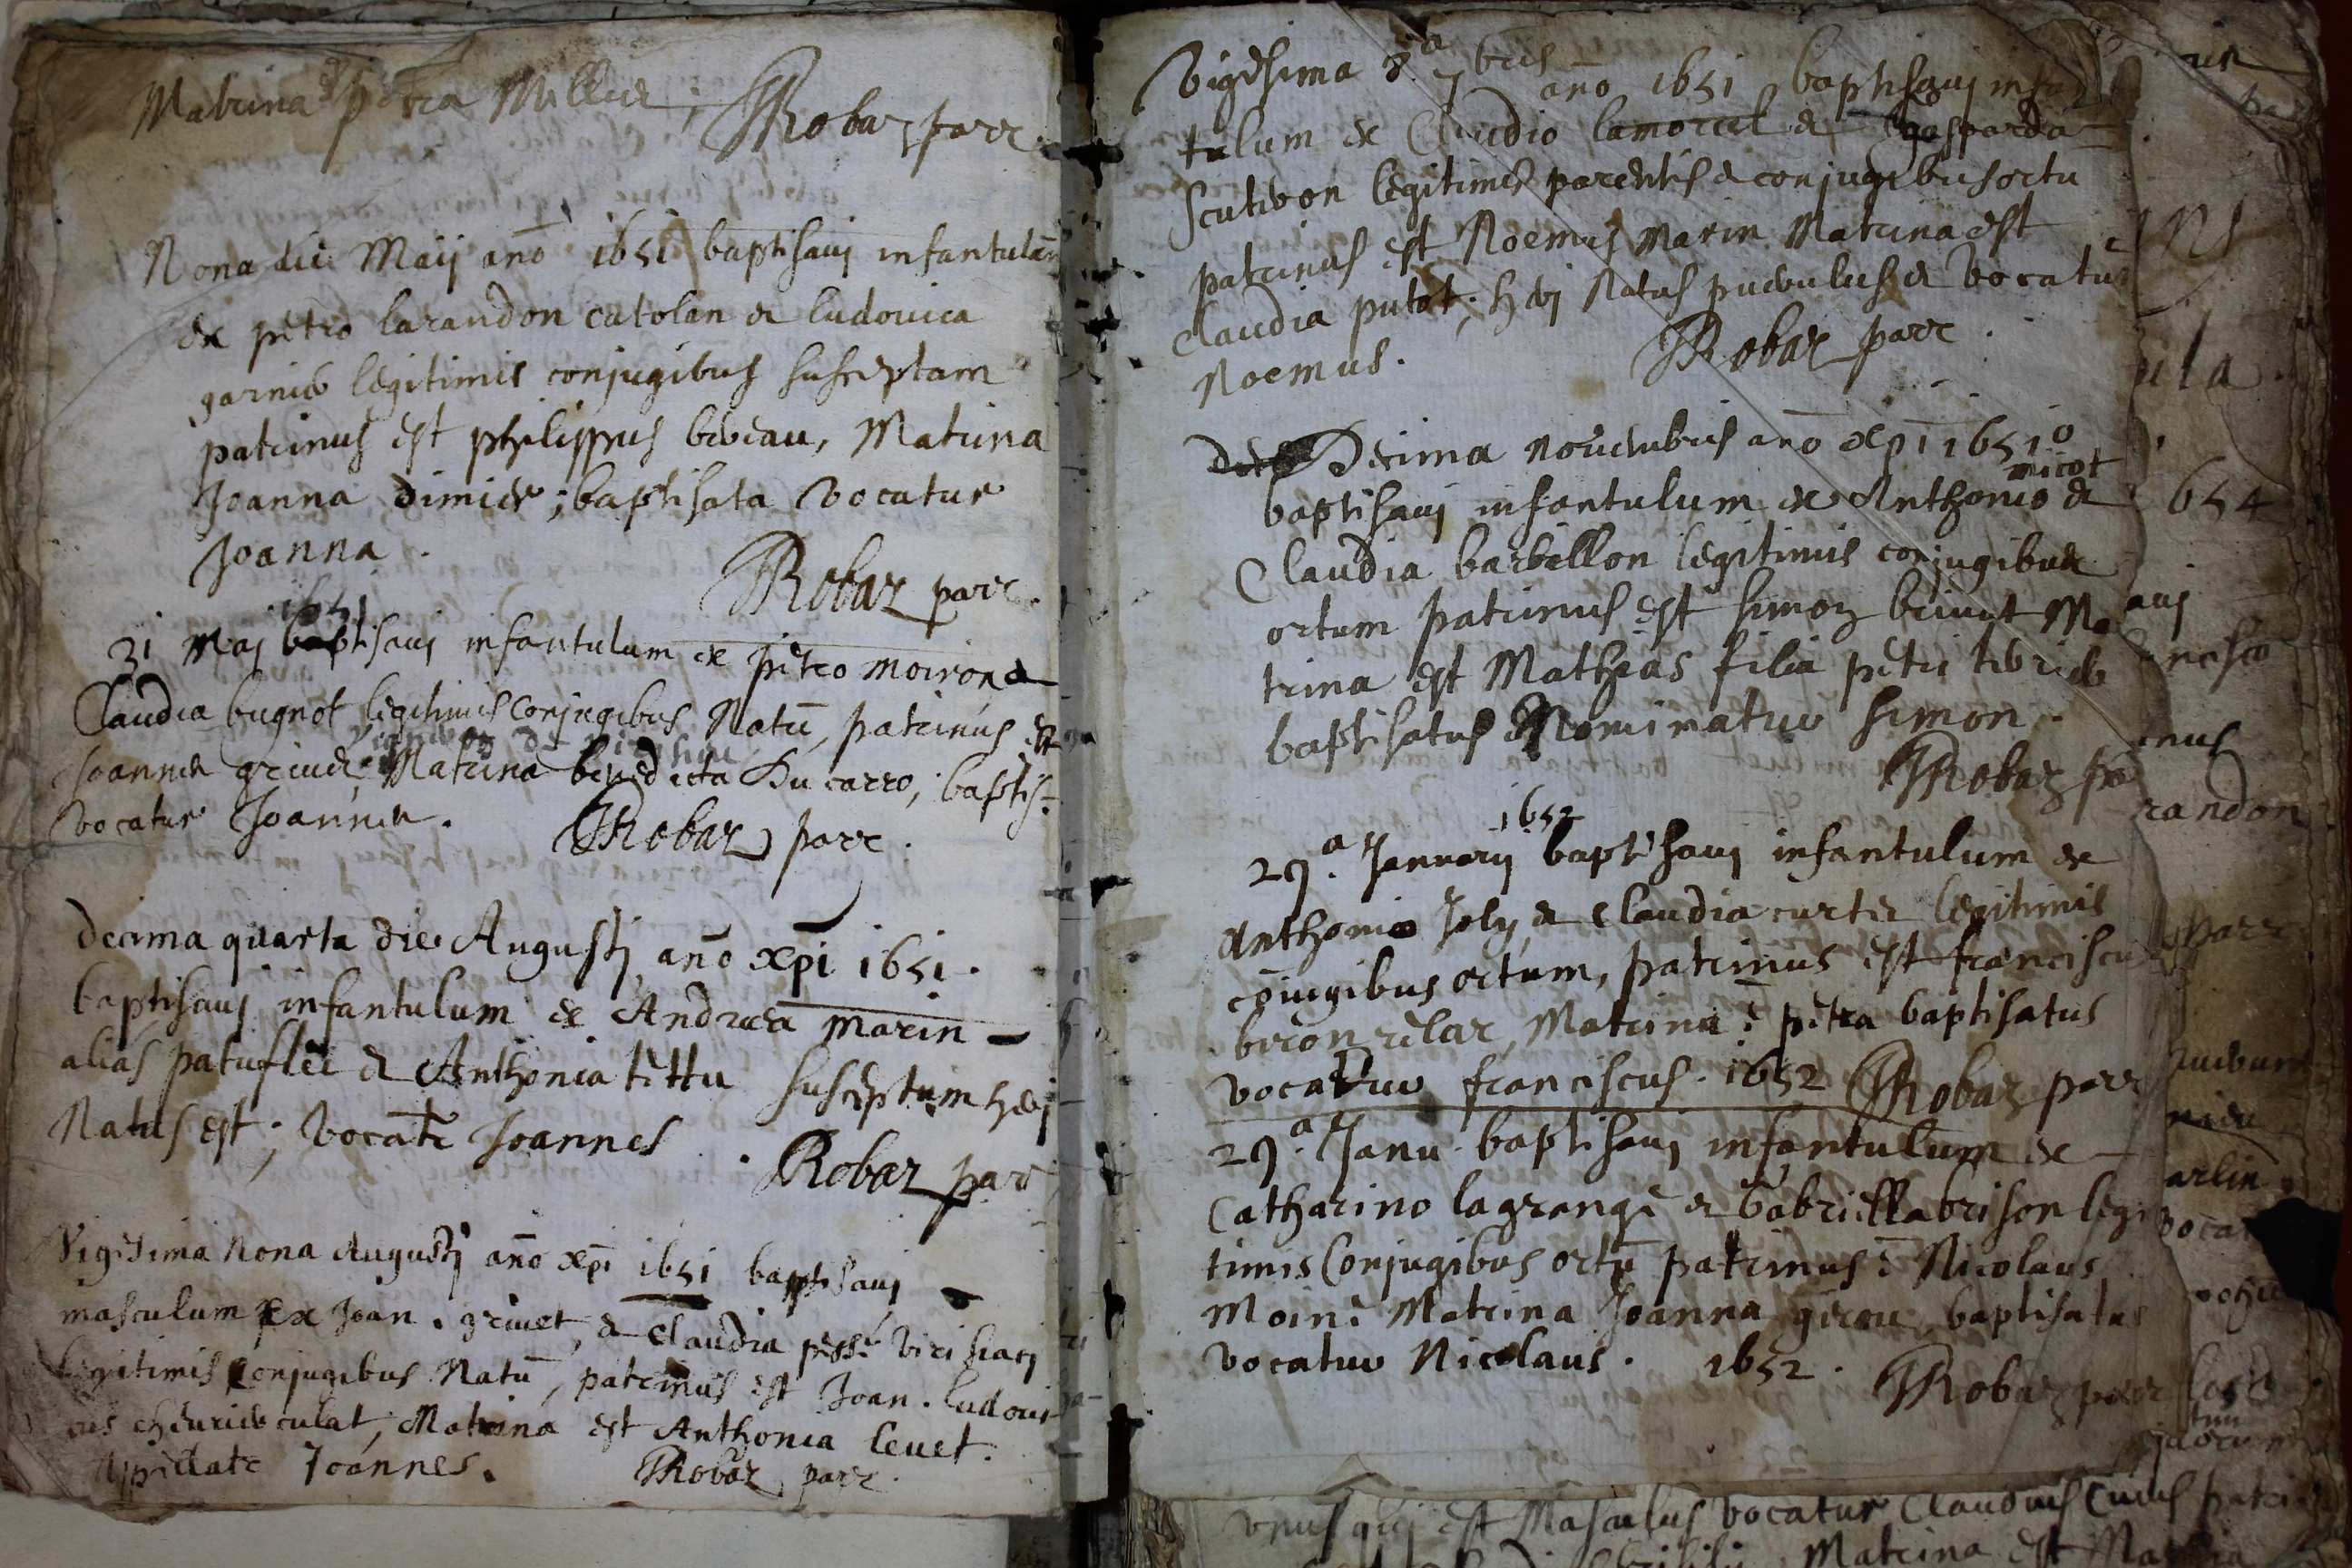 Matrina petra Millier; Robaz parr.
Nona die Maij año 1651 baptisavj infantulam
ex petro larandon catolan et ludovica
garnier legitimis conjugibus susceptam
patrinus est philippus breveau, Matrina
Joanna dimier; baptisata vocatur
Joanna.
Robaz parr.
1651
31 Maj baptisavj infantulum ex petro moiron et
Claudia bugnot legitimis conjugibus Natū, patrinus est
Joannes grivet, Matrina benedicta Ducarro; baptis.
vocatur Joannes. Robaz parr.
decima quarta die Augustj año xpi 1651.
baptisavj infantulum ex Andrea marin
alias patuflet et Anthonia tettu susceptum herj
Natus est; vocatr Joannes. Robaz parr
Vigesima Nona Augustj año xpi 1651 baptisavj
masculum ex Joan. grivet, et Claudia
legitimis conjugibus Natū, patrinus est Joan. ludovi
cus culat, Matrina est Anthonia levet.
Appellatr Joannes. Robaz parr.
Vigesima 8a 7bris año 1651 baptisavj infan
tulum ex Claudio lamorcel et gasparda
scutivon legitimis parentis et conjugibus ortu
patrinus est Noemus Marin Matrina est
Claudia putot; herj Natus puerulus et vocatus
Noemus. Robaz parr.
Decima Novembris año xpi 1651o
micot
baptisavj infantulum ex Anthonio et
Claudia barbellon legitimis conjugibus
ortum patrinus est simon brivet Ma
trina est Mathias filia petri
baptisatus Nominatur simon.
Robaz pa
1652
29.a Januarij baptisavj infantulum ex
Anthonio Joly et Claudia curtet legitimis
coiugibus ortum, patrinus est franciscu
Matrina ē petra baptisatus
vocatur franciscus. 1652 Robaz parr
29.a Janu. baptisavj infantulum ex
Catharino lagrange et Gabriella brison legi
timis Conjugibus ortū patrinus ē Nicolaus
Moine Matrina Joanna girou baptisatus
vocatur Nicolaus. 1652. Robaz parr
654
randon
parr
vnus qui est Masculus vocatur Claudius Cuius patri
Matrina est